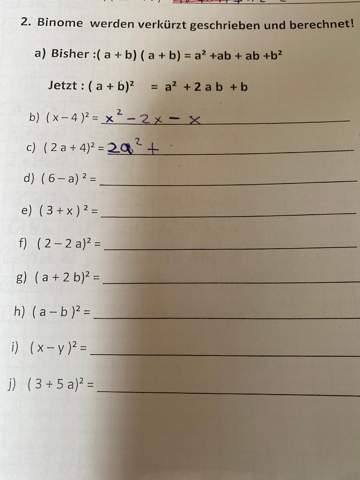 2. Binome werden verkürzt geschrieben und berechnet!
a) Bisher :( a + b) ( a + b) = a² +ab + ab +b²
Jetzt : ( a + b)² = a² + 2 a b + b
b) ( x – 4 )² = x² – 2x – x
c) ( 2 a + 4)² = 2a² +
d) ( 6 – a) ² =
e) ( 3 + x ) ² =
f) ( 2 – 2 a)² =
g) ( a + 2 b)² =
h) ( a – b )² =
i) ( x – y )² =
j) ( 3 + 5 a)² =